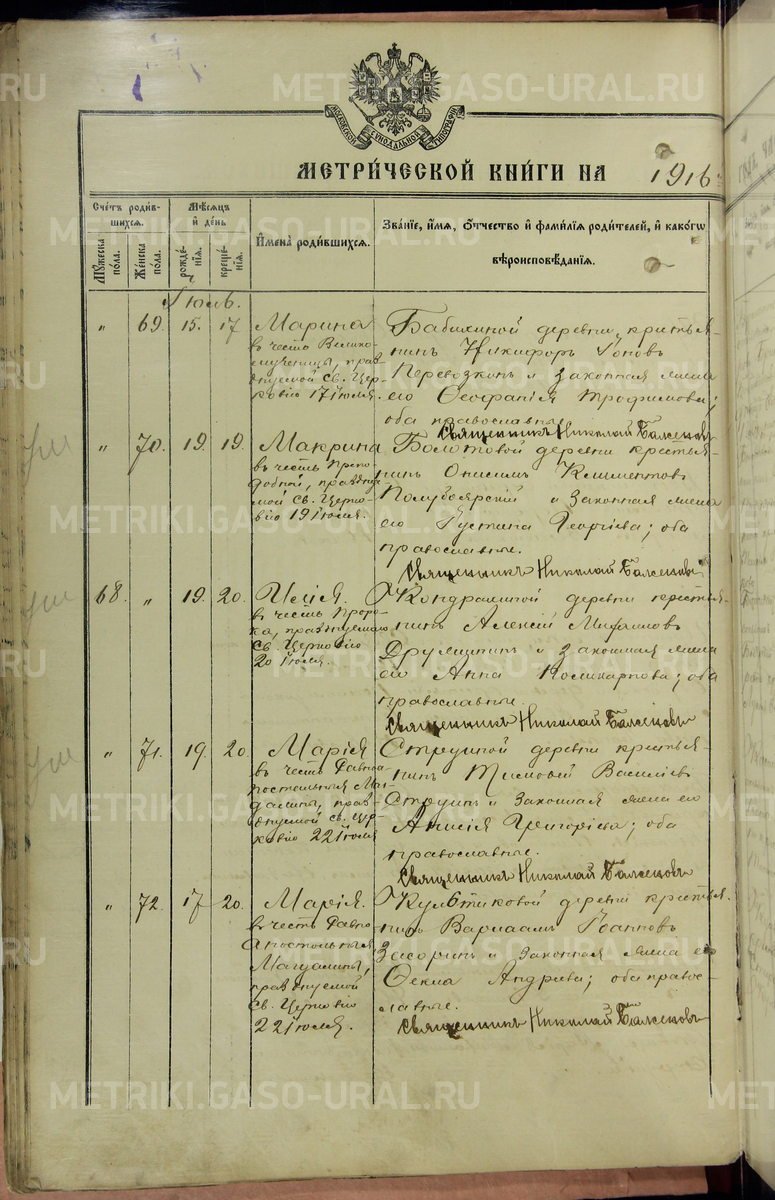 МОСКОВСКОЙ СѴНОДАЛЬНОЙ ТИПОГРАФІИ
МЕТРИ́ЧЕСКОЙ КНИ́ГИ НА 1916
Сче́тъ роди́в-
шихся.
Мѣ́сяцъ
и де́нь
Мꙋ́жеска по́ла.
Же́нска по́ла.
рожде́-
нїя.
креще́-
нїя.
И҆мена̀ роди́вшихся.
Зва́нїе, и҆́мя, ѻ҆́тчество и҆ фами́лїя роди́телей, и҆ како́гѡ
вѣроисповѣ́данїя.
Іюль.
" 69. 15. 17 Марина
въ честь Велико-
мученицы, празд-
нуемой Св. Цер-
ковію 17 Іюля.
Бабихиной деревни крестья-
нинъ Никифоръ
и законная жена
его Трофимова;
оба православные.
Священникъ Николай
" 70. 19. 19. Макрина
въ честь Препо-
добной, праздну-
емой Св. Церко-
вію 19 Іюля.
Болотовой деревни крестья-
нинъ Онисимъ Климентовъ
Полубоярскій и законная жена
его Іустина Георгіева; оба
православные.
Священникъ Николай
68. " 19. 20. Илія.
въ честь Проро-
ка, празднуемаго
Св. Церковію
20 Іюля.
деревни крестья-
нинъ Алексій
и законная жена
его Анна Поликарпова; оба
православные.
Священникъ Николай
" 71. 19. 20. Марія
въ честь Равноа-
постольныя Маг-
далины, празд-
нуемой св. Цер-
ковію 22 Іюля
деревни крестья-
нинъ Тимофей Василіевъ
и законная жена его
Анисія Григоріева; оба
православные.
Священникъ Николай
" 72. 17 20. Марія.
въ честь Равно
Апостольныя
Магдалины,
празднуемой
Св. Церковію
22 Іюля.
Культиковой деревни крестья-
нинъ Варлаамъ Іоанновъ
Засоринъ и законная жена его
Ѳекла Андреева; оба право-
славные.
Священникъ Николай
METRIKI.GASO-URAL.RU